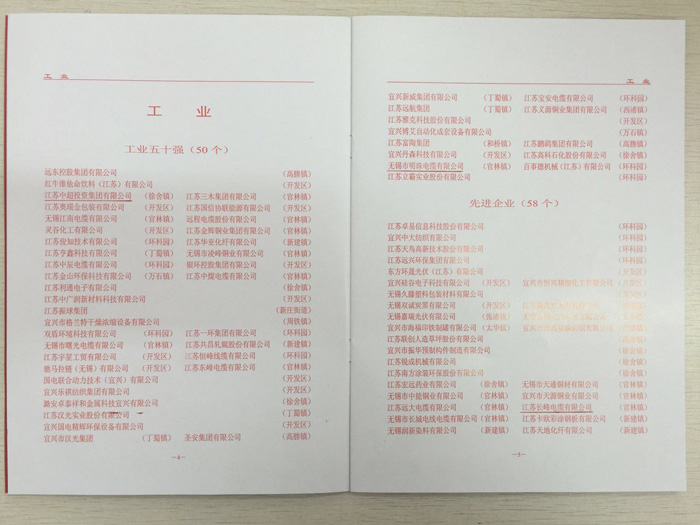 工 业
工 业
工业五十强（50 个）
远东控股集团有限公司 （高塍镇）
红牛维他命饮料（江苏）有限公司 （开发区）
江苏中超投资集团有限公司 （徐舍镇） 江苏三木集团有限公司 （官林镇）
江苏奥瑞金包装有限公司 （开发区） 江苏国信协联能源有限公司 （徐舍镇）
无锡江南电缆有限公司 （官林镇） 远程电缆股份有限公司 （官林镇）
灵谷化工有限公司 （开发区） 江苏金辉铜业集团有限公司 （官林镇）
江苏俊知技术有限公司 （环科园） 江苏华亚化纤有限公司 （新建镇）
江苏亨鑫科技有限公司 （丁蜀镇） 无锡市凌峰铜业有限公司 （官林镇）
江苏中辰电缆有限公司 （环科园） 银环控股集团有限公司 （开发区）
江苏金山环保科技有限公司 （万石镇） 江苏中煤电缆有限公司 （官林镇）
江苏利通电子有限公司 （徐舍镇）
江苏中广润新材料科技有限公司 （开发区）
江苏振球集团 （新庄街道）
宜兴市格兰特干燥浓缩设备有限公司 （周铁镇）
双盾环境科技有限公司 （环科园） 江苏一环集团有限公司 （环科园）
无锡市曙光电缆有限公司 （官林镇） 江苏共昌轧辊股份有限公司 （新建镇）
江苏宇星工贸有限公司 （开发区） 江苏恒峰线缆有限公司 （环科园）
驰马拉链（无锡）有限公司 （开发区） 江苏东峰电缆有限公司 （官林镇）
国电联合动力技术（宜兴）有限公司 （开发区）
宜兴乐祺纺织集团有限公司 （开发区）
潞安卓泰祥和金属科技宜兴有限公司 （徐舍镇）
江苏汉光实业股份有限公司 （丁蜀镇）
宜兴国电精辉环保设备有限公司 （开发区）
宜兴市汉光集团 （丁蜀镇） 圣安集团有限公司 （高塍镇）
—4—
工 业
宜兴新威集团有限公司 （丁蜀镇） 江苏宝安电缆有限公司 （环科园）
江苏远航集团 （丁蜀镇） 江苏义源铜业集团有限公司 （西渚镇）
江苏雅克科技股份有限公司 （开发区）
宜兴博艾自动化成套设备有限公司 （万石镇）
江苏富陶集团 （和桥镇） 江苏鹏鹞集团有限公司 （高塍镇）
宜兴丹森科技有限公司 （开发区） 江苏高科石化股份有限公司 （徐舍镇）
无锡市明珠电缆有限公司 （官林镇） 百事德机械（江苏）有限公司 （环科园）
江苏立霸实业股份有限公司 （环科园）
先进企业（58 个）
江苏卓易信息科技股份有限公司 （环科园）
宜兴中大纺织有限公司 （环科园）
江苏天鸟高新技术股份有限公司 （环科园）
江苏远兴环保集团有限公司 （环科园）
东方环晟光伏（江苏）有限公司 （开发区）
宜兴硅谷电子科技有限公司 （开发区） （开发区）
无锡久滕塑料包装材料有限公司
无锡双诚炭黑有限公司 （开发区）
无锡嘉瑞光伏有限公司
宜兴市海福印铁制罐有限公司 （太华镇）
江苏联创人造草坪股份有限公司
宜兴市振华预制构件制造有限公司
江苏锐成机械有限公司 （环科园）
江苏南方涂装环保股份有限公司 （环科园）
江苏宏远药业有限公司 （徐舍镇） 无锡市大通铜材有限公司 （官林镇）
无锡市中能铜业有限公司 （官林镇） 宜兴市天源铜业有限公司 （官林镇）
江苏远大电缆有限公司 （官林镇） 江苏长峰电缆有限公司 （官林镇）
无锡市长城电线电缆有限公司 （官林镇） 江苏卡欧彩涂钢板有限公司 （官林镇）
无锡润新染料有限公司 （新建镇） 江苏天地化纤有限公司 （新建镇）
—5—